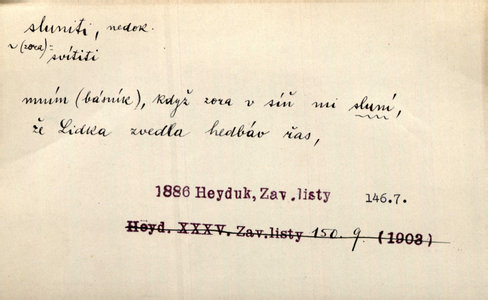 sluniti, nedok.
~ (zora) =
svítiti
mním (básník), když zora v síň mi sluní,
že Lidka zvedla hedbáv řas,
1886 Heyduk, Zav.listy 146.7.
Heyd. XXXV. Zav.listy 150. 9. (1903)